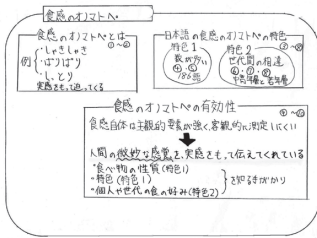 食感のオノマトペ
食感のオノマトペとは
①〜②
例
・しゃきしゃき
・ぱりぱり
・しっとり
実感をもって迫ってくる
日本語の食感のオノマトペの特色
③〜⑧
特色1
数が多い
④・⑤
特色2
世代間の相違
⑥・⑦・⑧
中高年層と若年層
食感のオノマトペの有効性
食感自体は主観的要素が強く、客観的に測定しにくい
人間の微妙な感覚を、実感をもって伝えてくれている
・食べ物の性質(特色1)
・特色(特色1)
・個人や世代の食の好み(特色2)
を知る手がかり